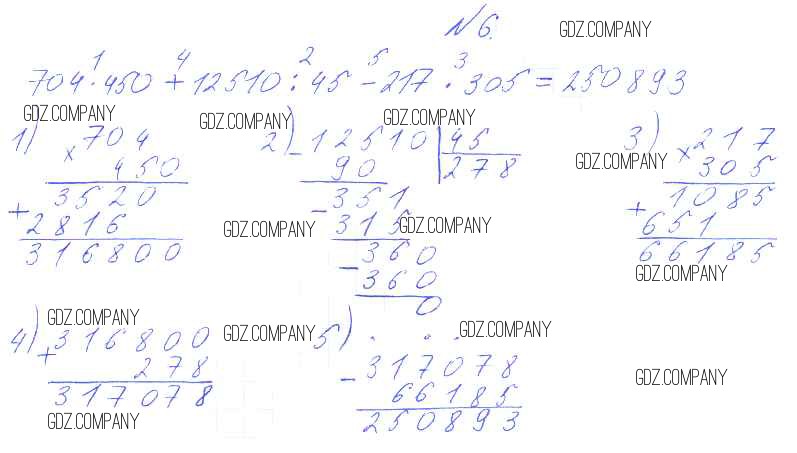 №6. GDZ.COMPANY
1 4 2 5 3
704·450 + 12510 : 45 - 217 · 305 = 250893
GDZ.COMPANY GDZ.COMPANY GDZ.COMPANY
1) × 704
450
3520
+ 2816
316800
2) - 12510 | 45
90 278
- 351
315
- 360
360
0
GDZ.COMPANY GDZ.COMPANY
3) × 217
305
1085
+ 651
66185
GDZ.COMPANY
GDZ.COMPANY
GDZ.COMPANY GDZ.COMPANY GDZ.COMPANY
4) + 316800
278
317078
GDZ.COMPANY
5) - 317078
66185
250893
GDZ.COMPANY